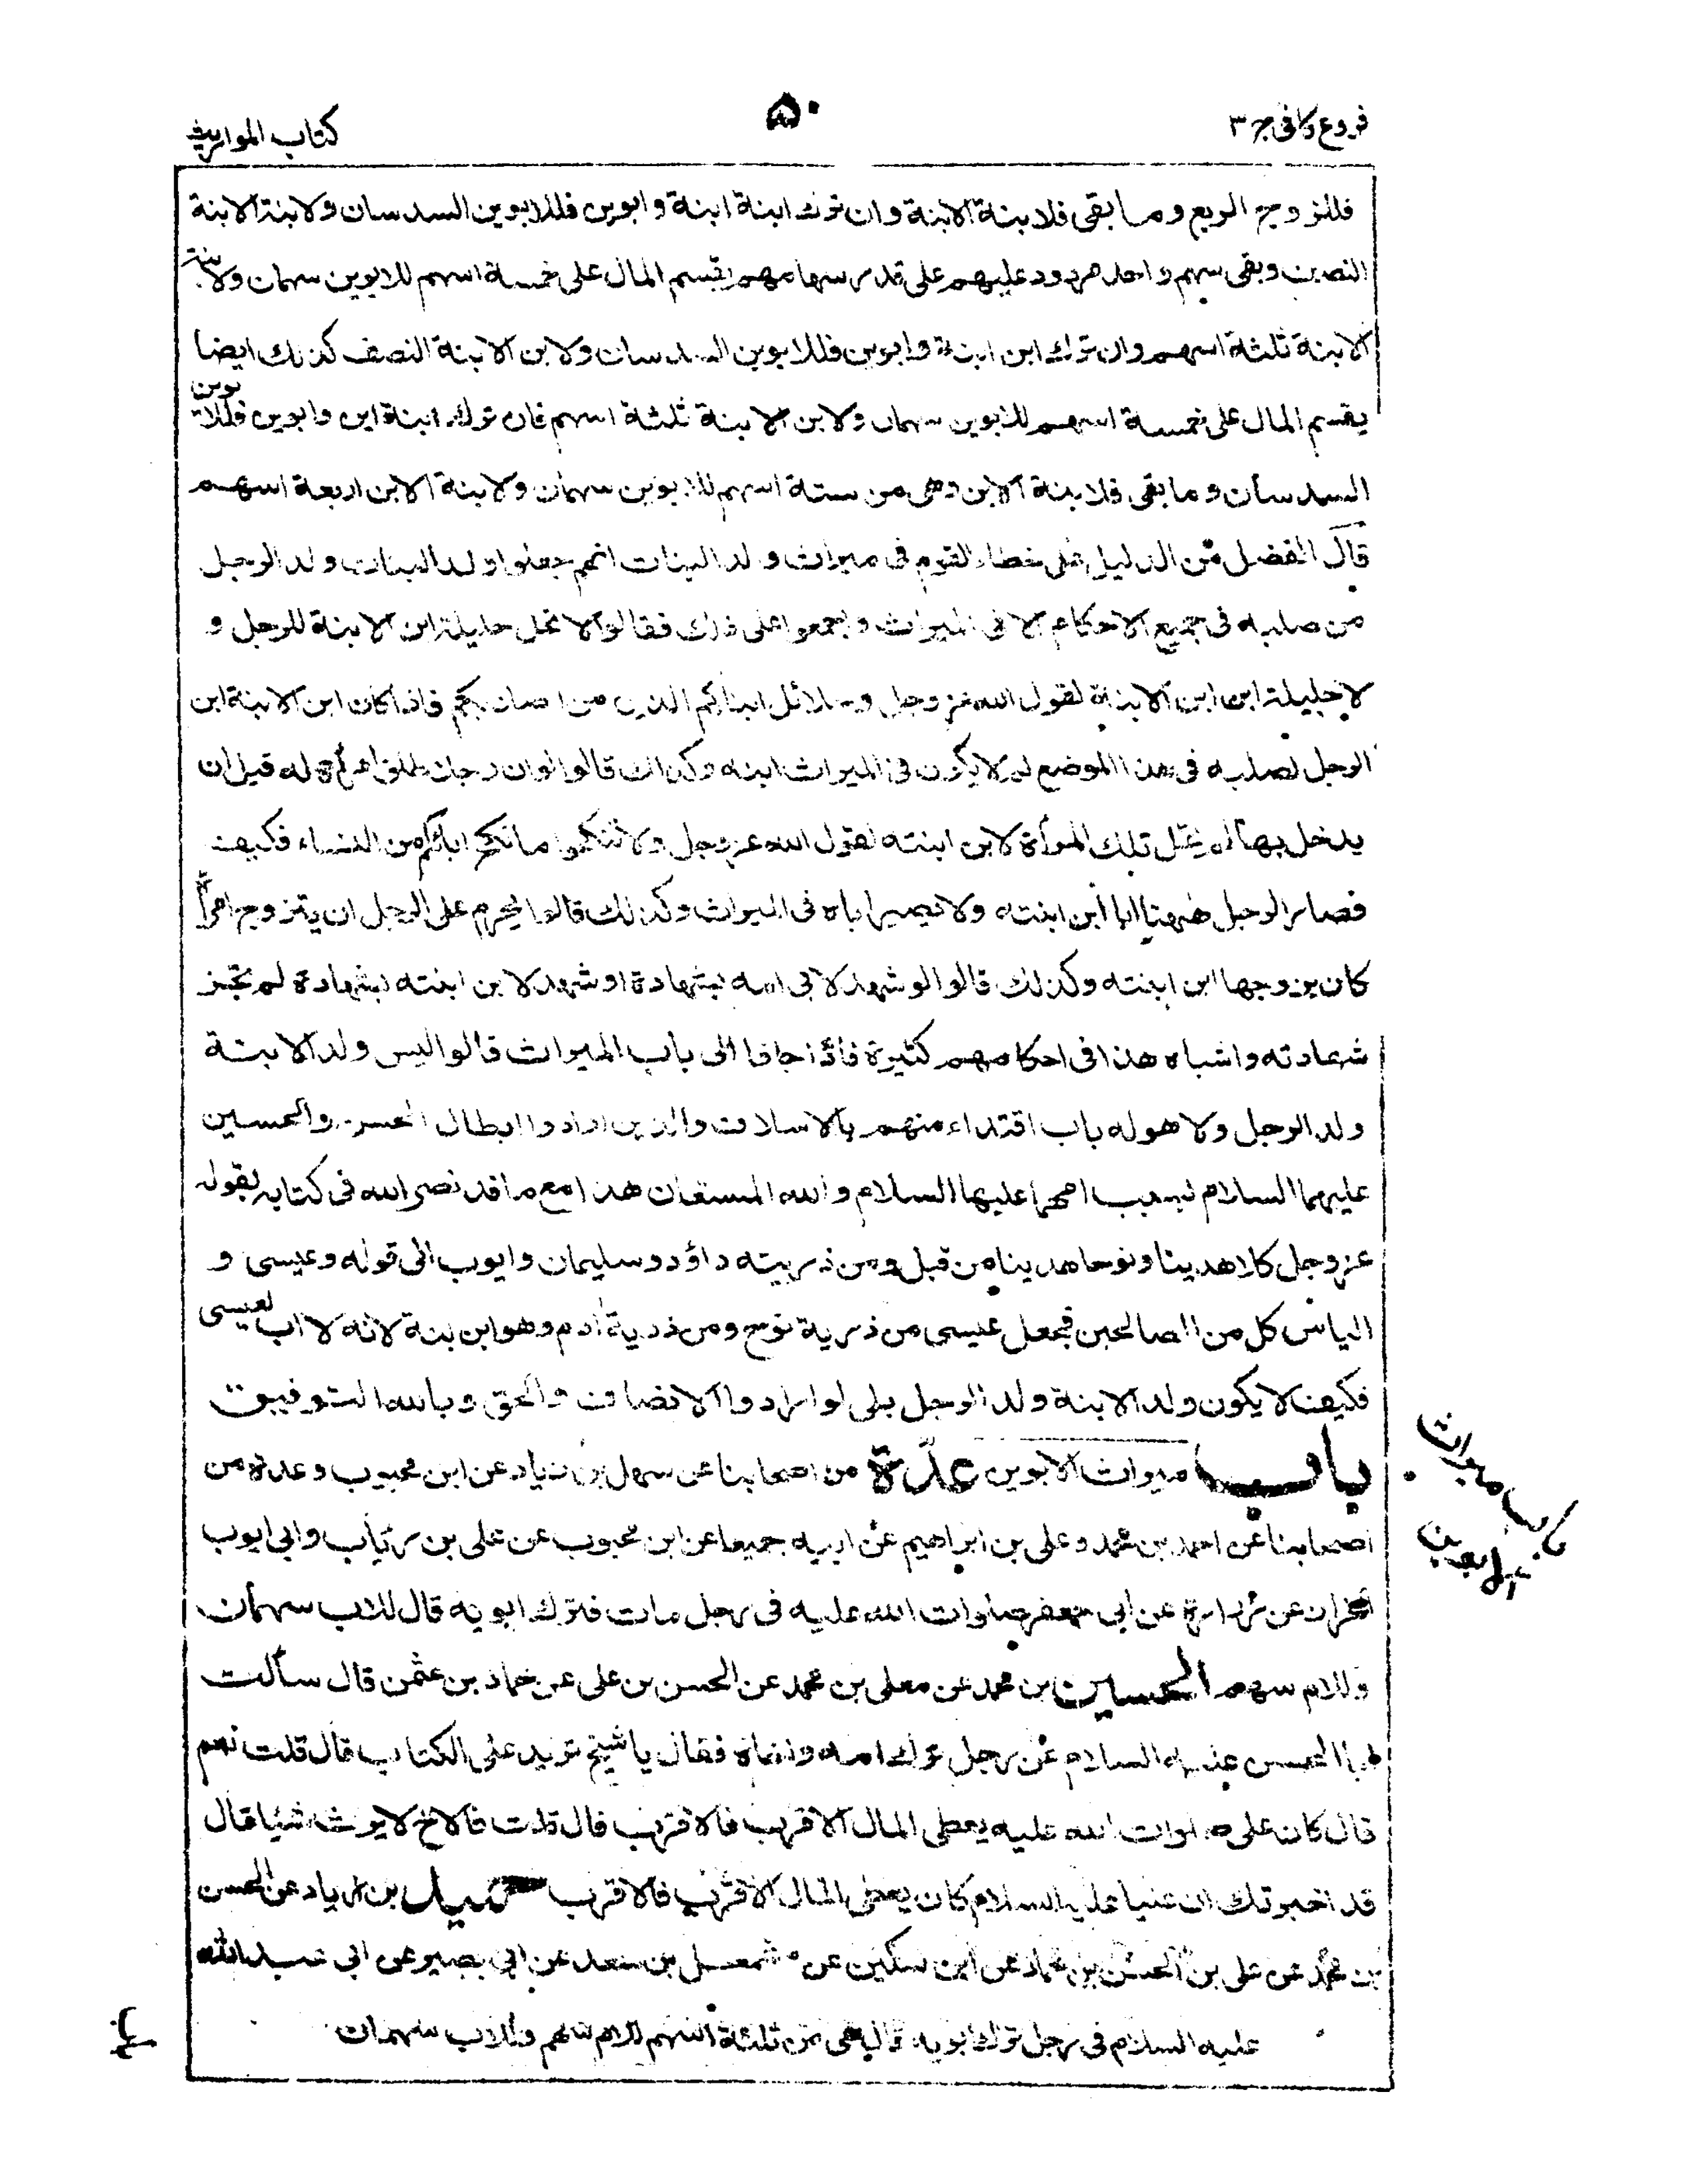 فروع كافی جز ۳
۵۰
كتاب المواريث
فللزوج الربع وما بقى فلابنة الابنة وان ترك ابنة ابنة وابوين فللابوين السدسان ولابنة الابنة
النصف وبقى سهم واحد مردود عليهم على قدر سهامهم يقسم المال على خمسة اسهم للابوين سهمان ولابنة
الابنة ثلثة اسهم وان ترك ابن ابنة وابوين فللابوين السدسان ولابن الابنة النصف كذلك ايضا
يقسم المال على خمسة اسهم للابوين سهمان ولابن الابنة ثلثة اسهم فان ترك ابنة ابن وابوين فللابوين
السدسان وما بقى فلابنة الابن وهى من ستة اسهم للابوين سهمان ولابنة الابن اربعة اسهم
قال الفضل من الدليل على خطاء القوم فى ميراث ولد البنات انهم جعلوا ولد البنات ولد الرجل
من صلبه فى جميع الاحكام الا فى الميراث واجمعوا على ذلك فقالوا لا تحل حليلة ابن الابنة للرجل و
لا حليلة ابن ابن الابنة لقول الله عز وجل وحلائل ابنائكم الذين من اصلابكم فاذا كان ابن الابنة ابن
الرجل لصلبه فى هذا الموضع لم لا يكون فى الميراث ابنه وكذلك قالوا لو ان رجلا طلق امرأة له قبل ان
يدخل بها لم تحل تلك المرأة لابن ابنته لقول الله عز وجل ولا تنكحوا ما نكح اباؤكم من النساء فكيف
فصار الرجل ههنا ابا ابن ابنته ولا يصير اباه فى الميراث وكذلك قالوا يحرم على الرجل ان يتزوج امرأة
كان يزوجها ابن ابنته وكذلك قالوا لو شهد لابى امه بشهادة او شهد لابن ابنته بشهادة لم تجز
شهادته واشباه هذا فى احكامهم كثيرة فاذا جاؤا الى باب الميراث قالوا ليس ولد الابنة
ولد الرجل ولا هو له باب اقتداء منهم بالاسلاف والذين ارادوا ابطال الحسن والحسين
عليهما السلام بسبب امهما عليها السلام والله المستعان هذا مع ما قد نص الله فى كتابه بقوله
عز وجل كلا هدينا ونوحا هدينا من قبل ومن ذريته داؤد وسليمان وايوب الى قوله وعيسى و
الياس كل من الصالحين فجعل عيسى من ذرية نوح ومن ذرية آدم وهو ابن بنة لانه لا اب لعيسى
فكيف لا يكون ولد الابنة ولد الرجل بلى لو ارادوا الانصاف والحق وبالله التوفيق
باب ميراث الابوين عدة من اصحابنا عن سهل بن زياد عن ابن محبوب وعدة من
باب ميراث الابوين
اصحابنا عن احمد بن محمد وعلى بن ابراهيم عن ابيه جميعا عن ابن محبوب عن على بن رئاب وابى ايوب
الخزاز عن زرارة عن ابى جعفر صلوات الله عليه فى رجل مات فترك ابويه قال للاب سهمان
وللام سهم الحسين بن محمد عن معلى بن محمد عن الحسن بن على عن حماد بن عثمن قال سألت
ابا الحسن عليه السلام عن رجل ترك امه واخاه فقال يا شيخ تريد على الكتاب قال قلت نعم
قال كان على صلوات الله عليه يعطى المال الاقرب فالاقرب قال قلت فالاخ لا يرث شيئا قال
قد اخبرتك ان عليا عليه السلام كان يعطى المال الاقرب فالاقرب حميد بن زياد عن الحسن
بن محمد عن على بن الحسن بن حماد عن ابن سكين عن مشمعل بن سعد عن ابى بصير عن ابى عبد الله
عليه السلام فى رجل ترك ابويه قال هى من ثلثة اسهم للام سهم وللاب سهمان